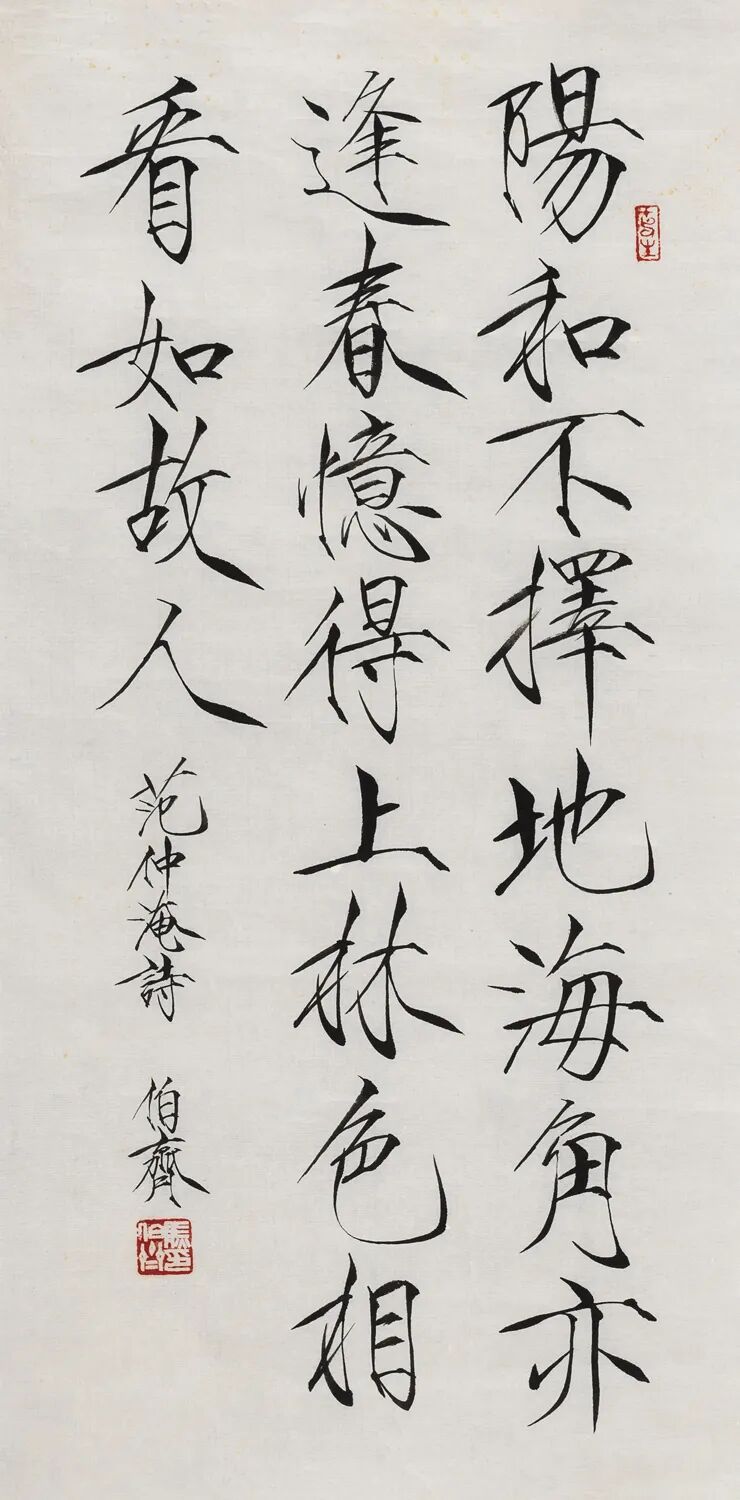 陽和不擇地海角亦
逢春憶得上林色相
看如故人
范仲淹詩 伯齊